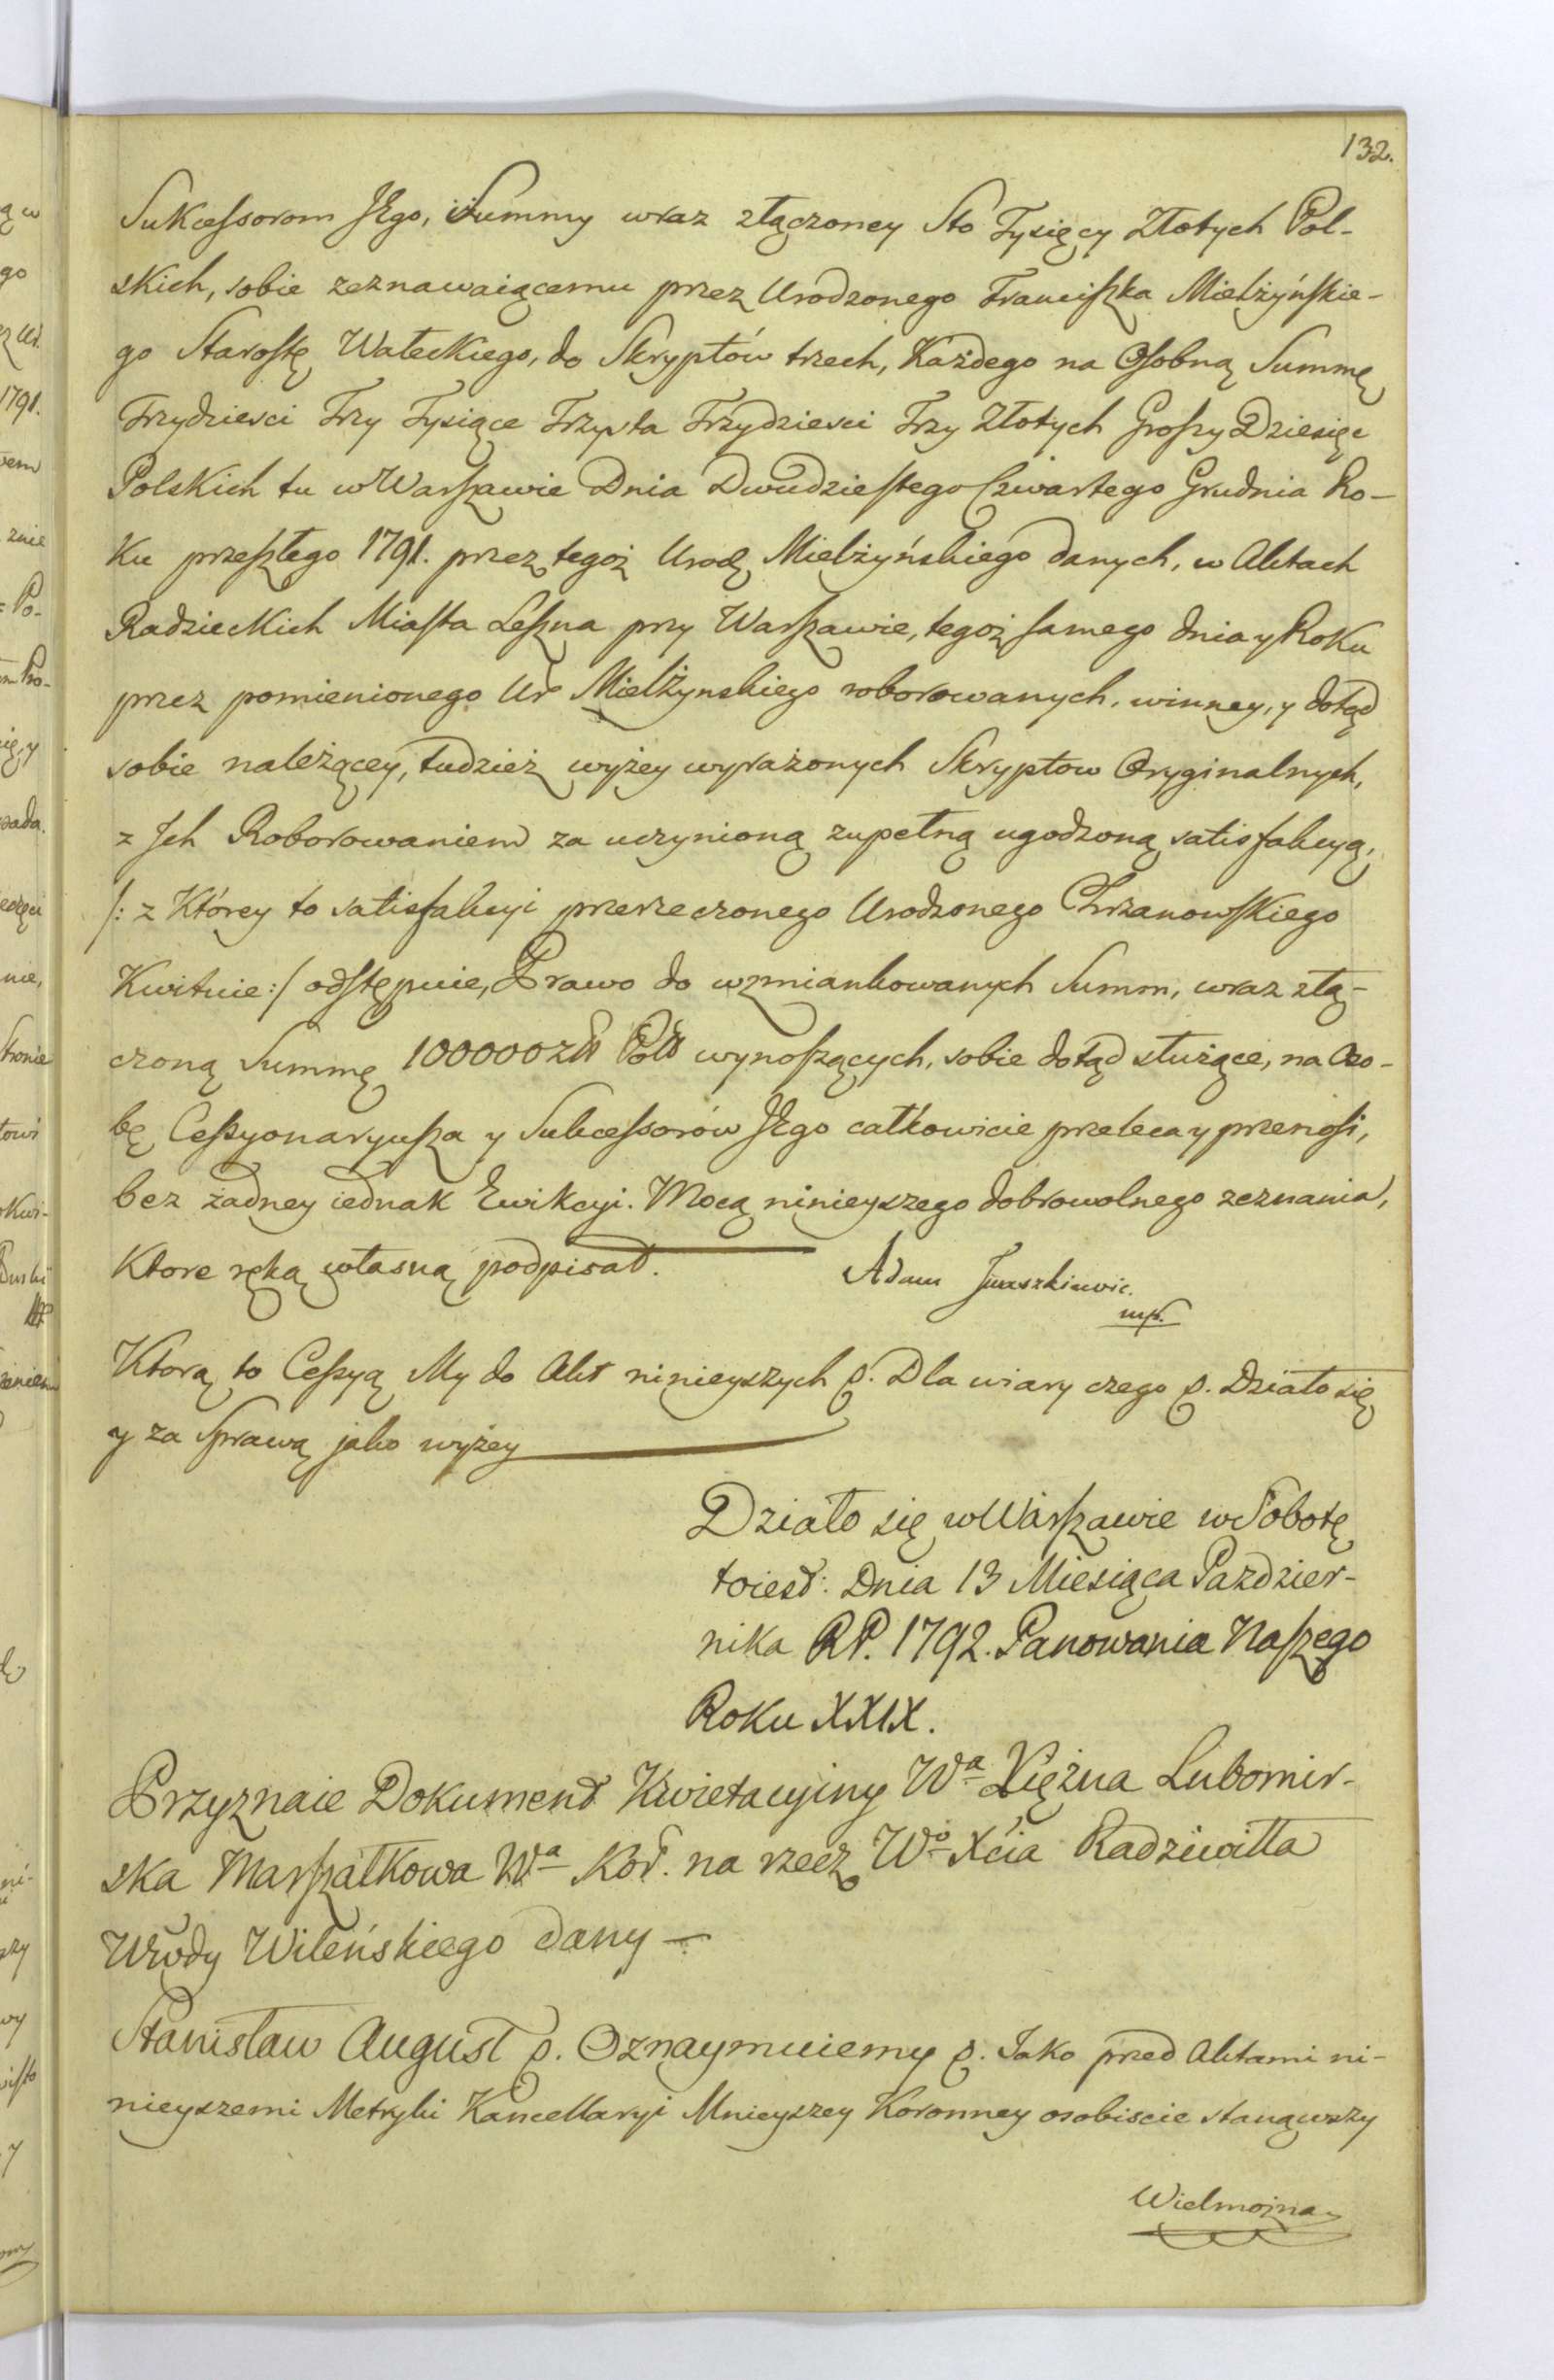 132.
Sukcessorom JEgo, Summy wraz złączoney Sto Tysięcy Złotych Pol-
skich, sobie zeznawaiącemu przez Urodzonego Franciszka Mielżyńskie-
go Starostę Wałeckiego, do Skryptów trzech, Każdego na Osobną Summę
Trzydziesci Trzy Tysiące Trzysta Trzydziesci Trzy Złotych Groszy Dziesięc
Polskich tu w Warszawie Dnia Dwudziestego Czwartego Grudnia Ro-
ku przeszłego 1791. przez tegoż Urodz Mielżyńskiego danych, w Aktach
Radzieckich Miasta Leszna przy Warszawie, tegoż samego dnia y Roku
przez pomienionego Ur Mielżynskiego roborowanych, winney, y dotąd
sobie należącey, tudzież wyżey wyrażonych Skryptow Oryginalnych,
z Jch Roborowaniem za uczynioną zupełną ugodzoną satisfakcyą,
/: z Którey to satisfakcyi przerzeczonego Urodzonego Chrzanowskiego
Kwituie :/ odstępuie, Prawo do wzmiankowanych Summ, wraz złą-
czoną Summę 100000 zł Pol wynoszących, sobie dotąd służące, na Oso-
bę Cessyonaryusza y Sukcessorów JEgo całkowicie przeleca y przenosi,
bez żadney iednak Ewikcyi. Mocą ninieyszego dobrowolnego zeznania,
Ktore ręką własną podpisał. Adam Juraszkiewic.
mp.
Ktorą to Cessyą My do Akt ninieyszych p. Dla wiary czego p. Działo się
y za Sprawą jako wyżey
Działo się w Warszawie w Sobotę
toiest: Dnia 13 Miesiąca Pazdzier-
nika RP. 1792. Panowania Naszego
Roku XXIX.
Przyznaie Dokument Kwietacyiny Wa Xiężna Lubomir-
ska Marszałkowa Wa Kor. na rzecz Wo Xcia Radziwiłła
Wwody Wileńskiego dany —
Stanisław August p. Oznaymuiemy p. Jako przed Aktami ni-
nieyszemi Metryki Kancellaryi Mnieyszey Koronney osobiscie stanąwszy
Wielmożna